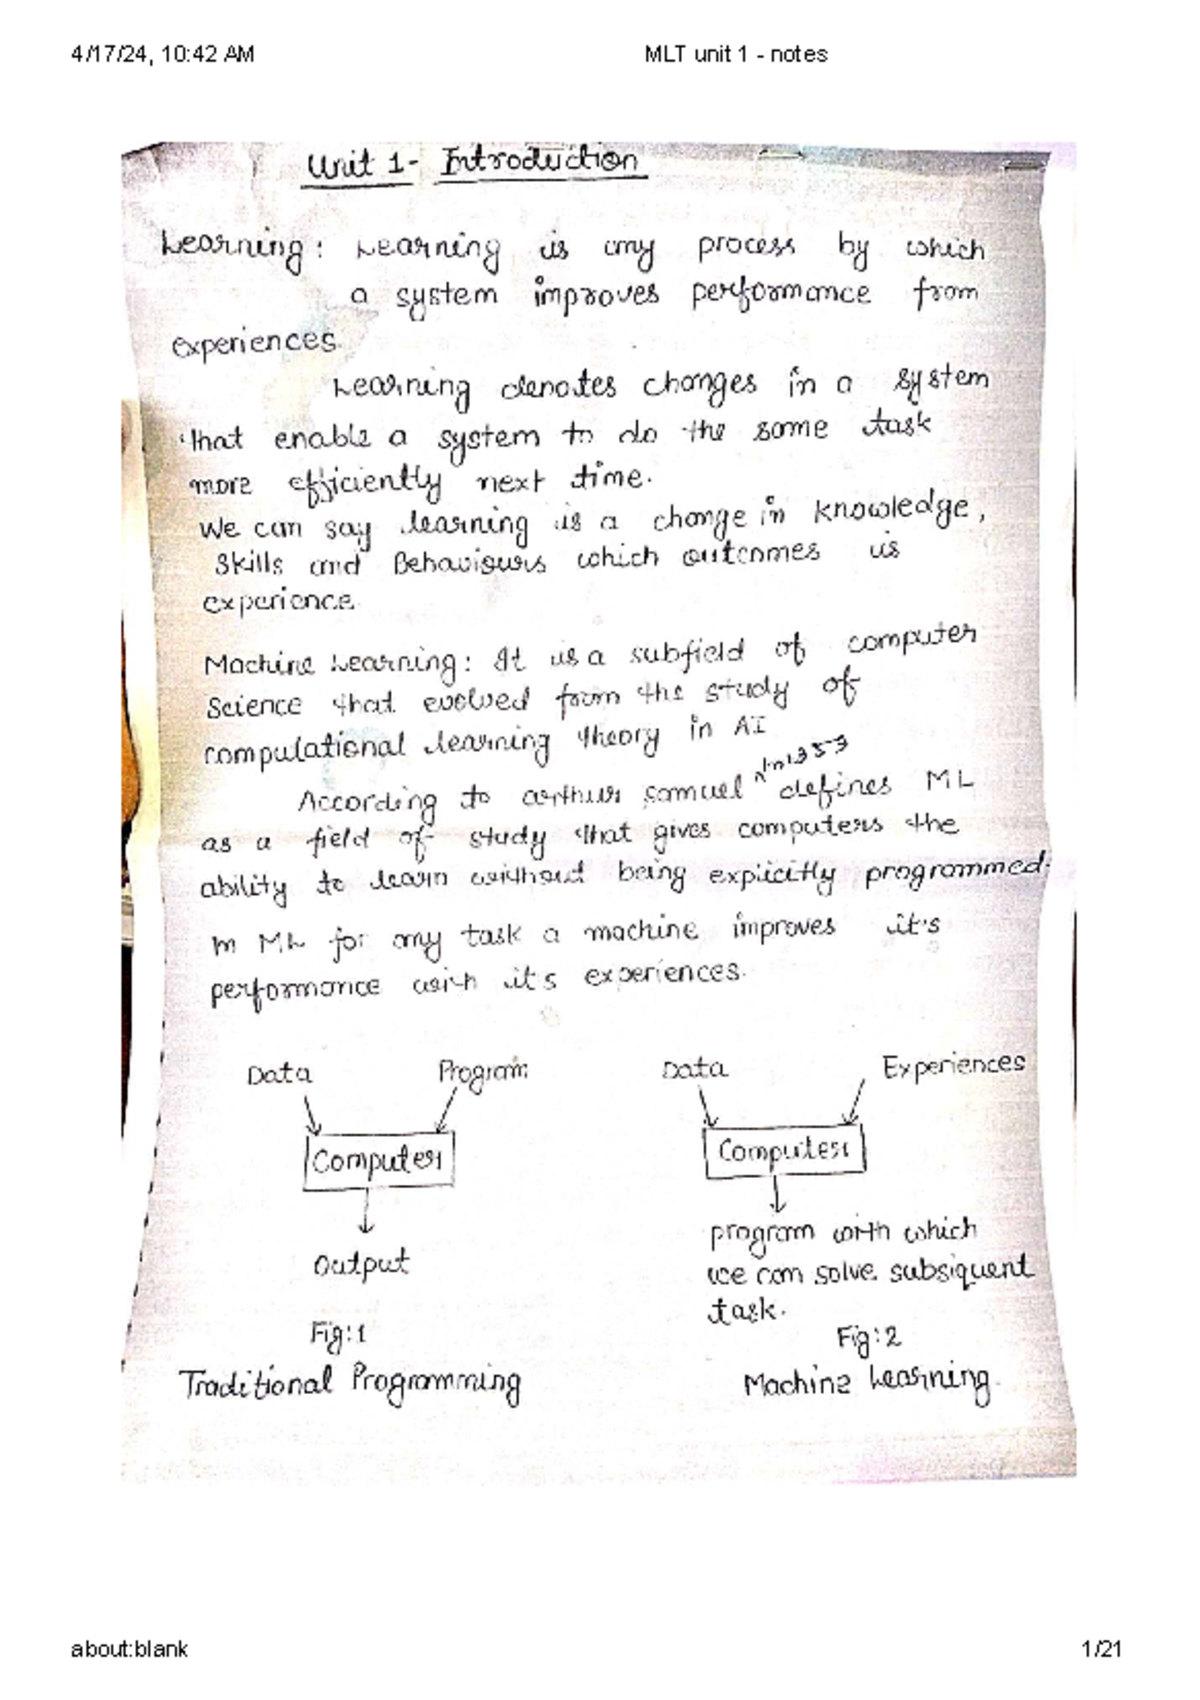 4/17/24, 10:42 AM MLT unit 1 - notes
Unit 1- Introduction
Learning: Learning is any process by which
a system improves performance from
experiences.
Learning denotes changes in a system
that enable a system to do the same task
more efficiently next time.
We can say learning is a change in knowledge,
Skills and Behaviours which outcomes is
experience.
Machine Learning: It is a subfield of computer
Science that evolved from the study of
computational learning theory in AI
In
According to arthur samuel ^ defines ML
as a field of study that gives computers the
ability to learn without being explicitly programmed.
In ML for any task a machine improves it's
performance with it's experiences.
Data Program Data Experiences
Computer Computer
Output
program with which
we can solve subsiquent
task.
Fig:1 Fig:2
Traditional Programming Machine Learning.
about:blank 1/21